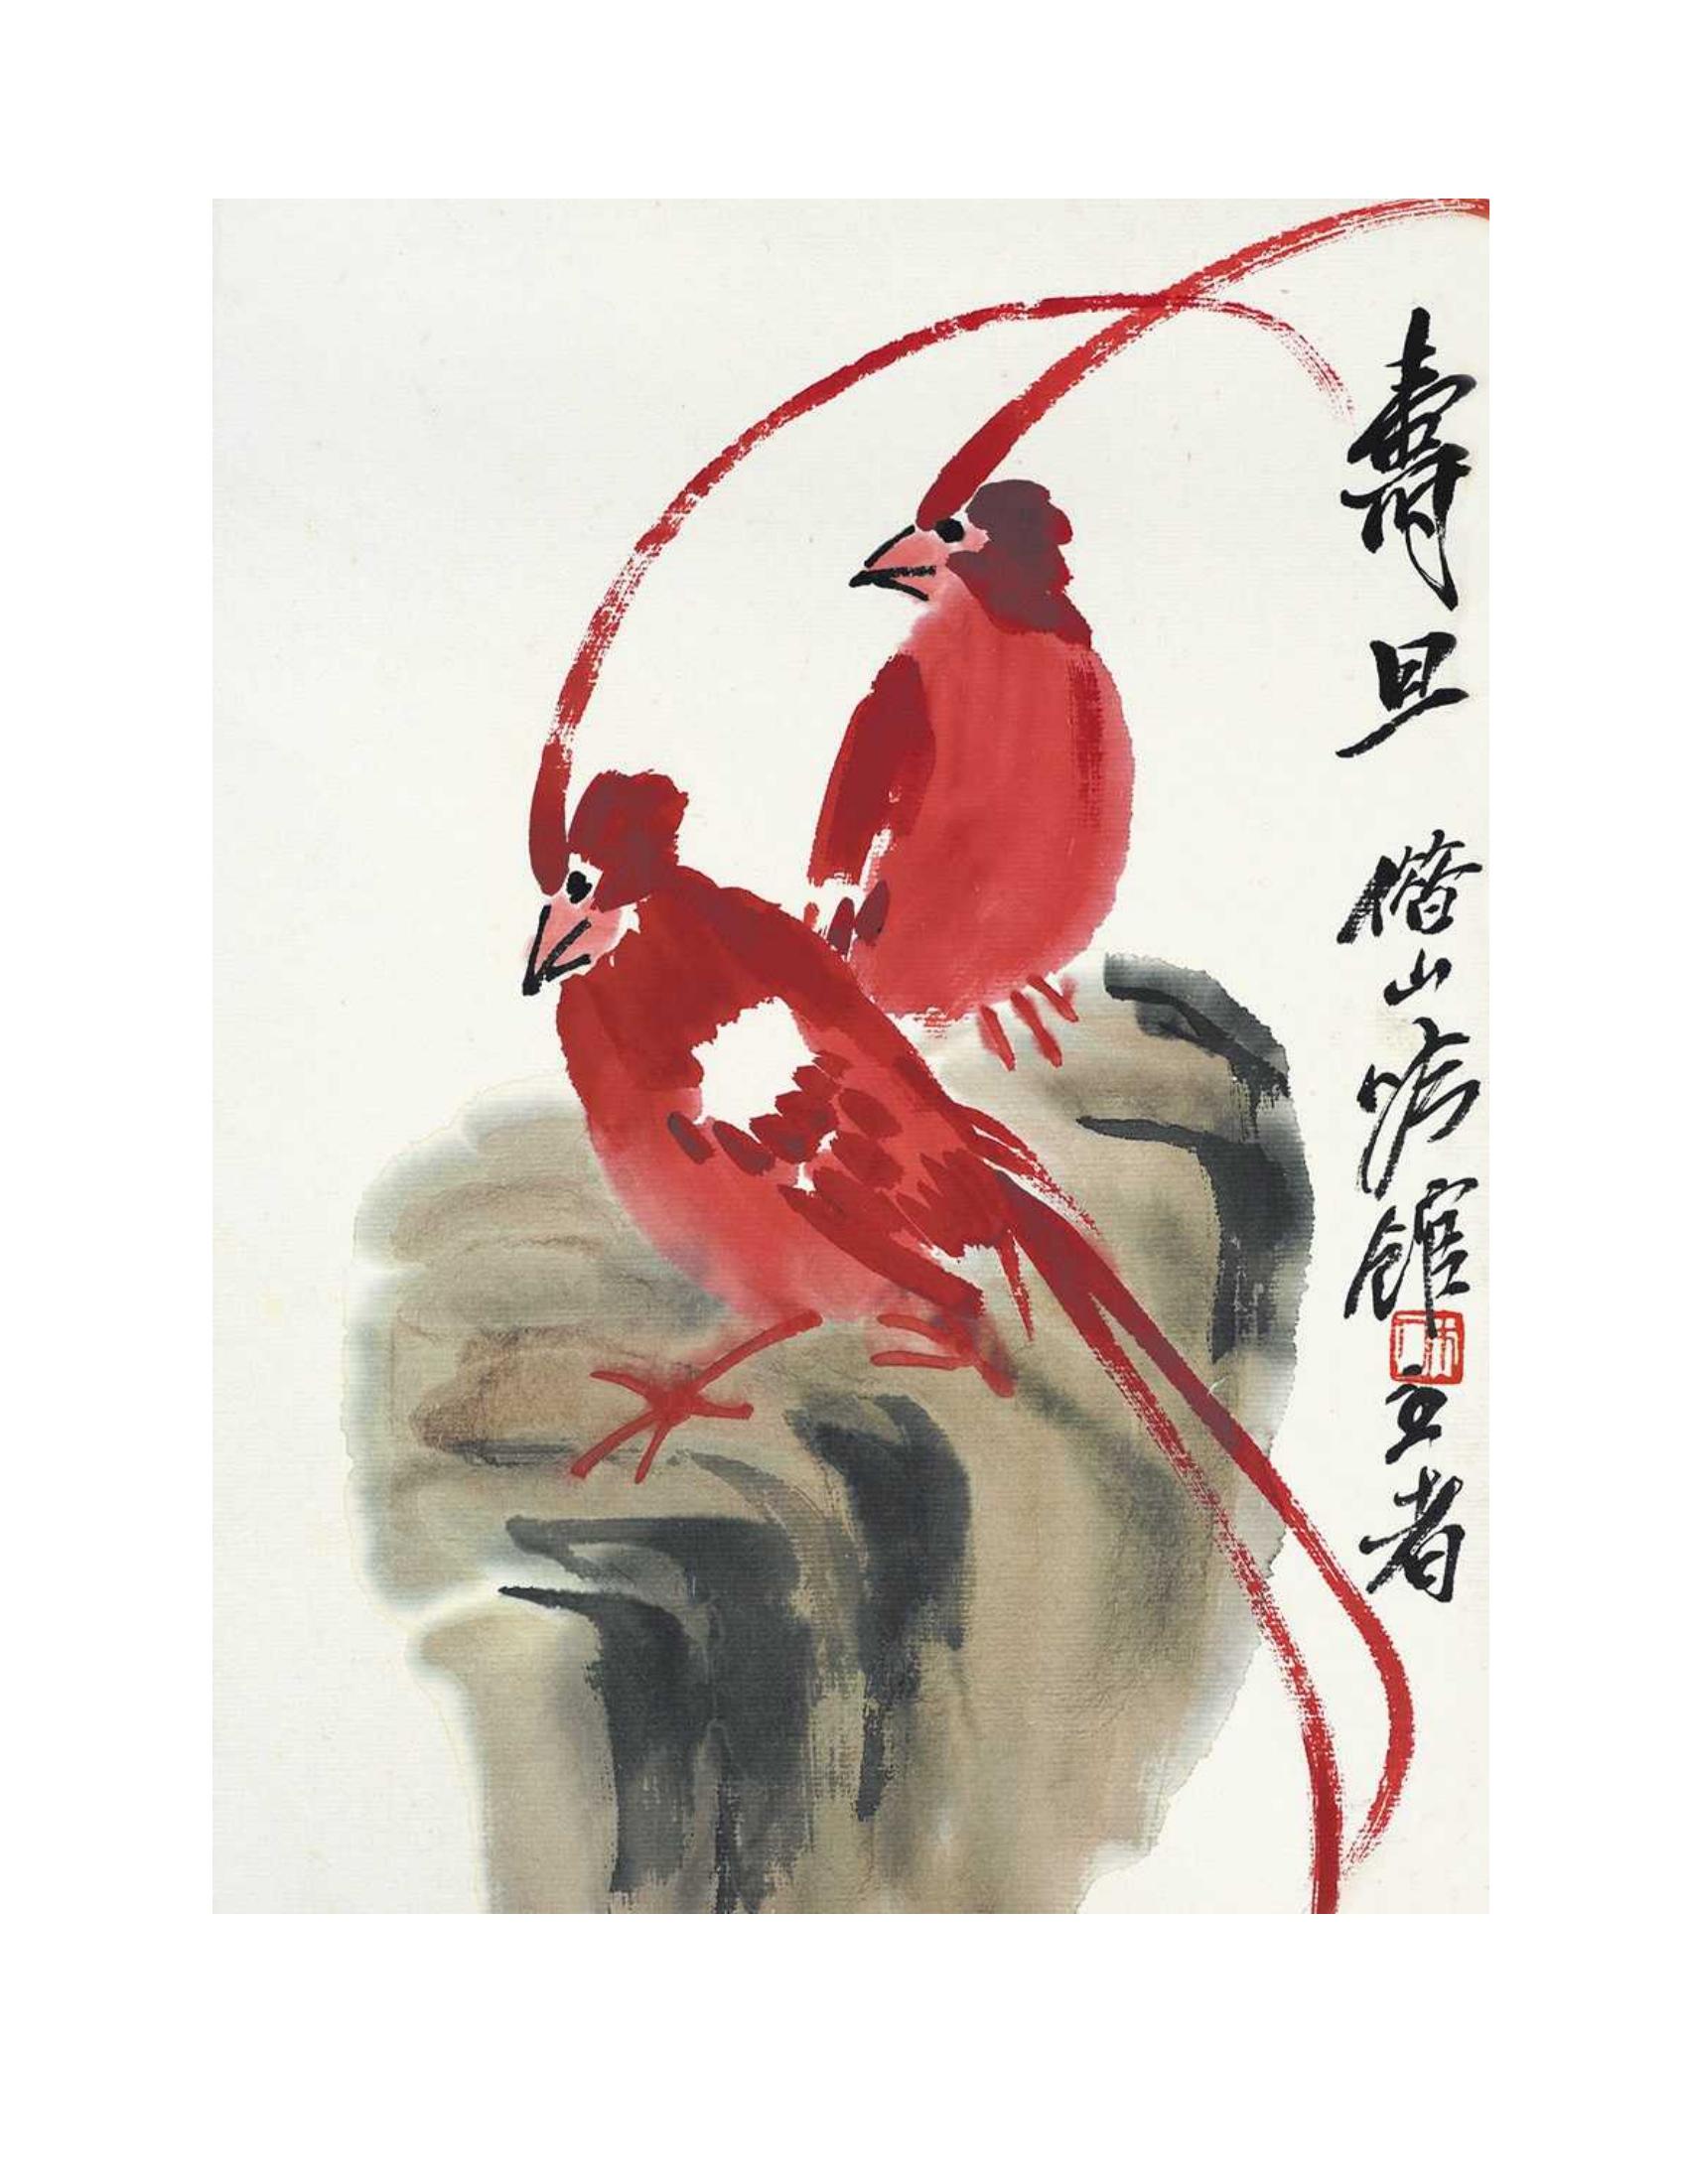 壽旦 借山吟館主者